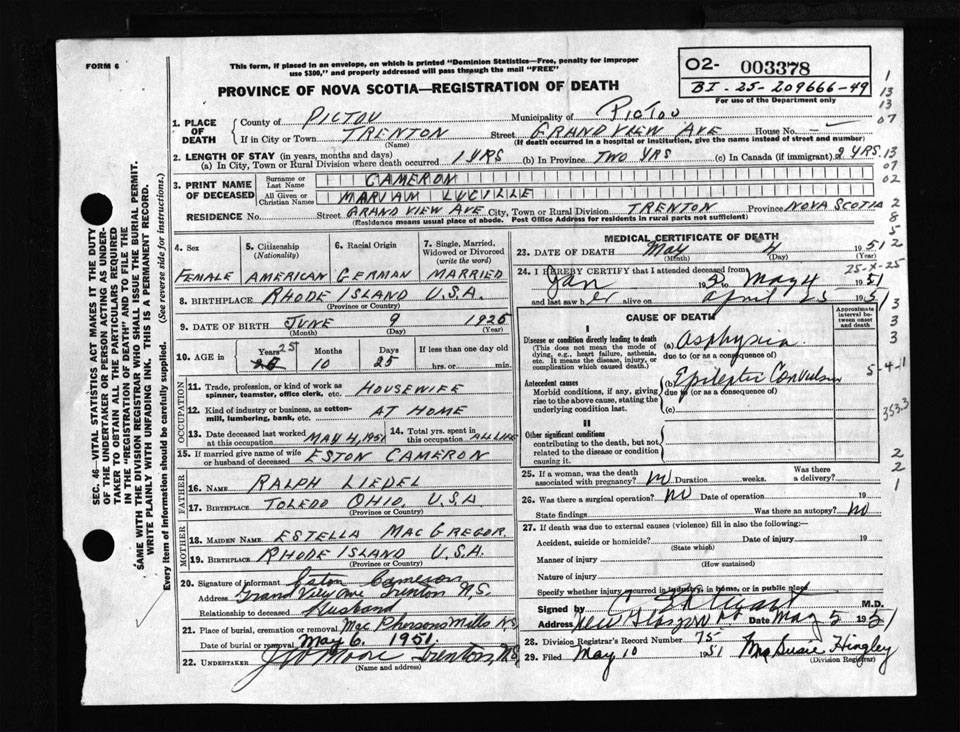 FORM 6
This form, if placed in an envelope, on which is printed "Dominion Statistics—Free, penalty for improper
use $300," and properly addressed will pass through the mail "FREE"
PROVINCE OF NOVA SCOTIA—REGISTRATION OF DEATH
O2- 003378
BI-25-209666-49
For use of the Department only
1. PLACE OF DEATH
County of PICTOU Municipality of PICTOU
If in City or Town TRENTON Street GRANDVIEW AVE House No. –
(Name) (If death occurred in a hospital or institution, give the name instead of street and number)
2. LENGTH OF STAY (in years, months and days)
(a) In City, Town or Rural Division where death occurred 1 YRS (b) In Province TWO YRS (c) In Canada (if immigrant) 2 YRS.
3. PRINT NAME OF DECEASED
Surname or Last Name CAMERON
All Given or Christian Names MARIAM LUCVILLE
RESIDENCE No. Street GRAND VIEW AVE City, Town or Rural Division TRENTON Province NOVA SCOTIA
(Residence means usual place of abode. Post Office Address for residents in rural parts not sufficient)
4. Sex
FEMALE
5. Citizenship
(Nationality)
AMERICAN
6. Racial Origin
GERMAN
7. Single, Married, Widowed or Divorced
(write the word)
MARRIED
8. BIRTHPLACE RHODE ISLAND U.S.A.
(Province or Country)
9. DATE OF BIRTH JUNE 9 1925
(Month) (Day) (Year)
10. AGE in
Years 25 Months 10 Days 25 If less than one day old
hrs. or min.
OCCUPATION
11. Trade, profession, or kind of work as spinner, teamster, office clerk, etc. HOUSEWIFE
12. Kind of industry or business, as cotton-mill, lumbering, bank, etc. AT HOME
13. Date deceased last worked at this occupation MAY 4, 1951
14. Total yrs. spent in this occupation ALL LIFE
15. If married give name of wife or husband of deceased ESTON CAMERON
FATHER
16. Name RALPH LIEDEL
17. BIRTHPLACE TOLEDO OHIO, U.S.A
(Province or Country)
MOTHER
18. MAIDEN NAME ESTELLA MACGREGOR.
19. BIRTHPLACE RHODE ISLAND U.S.A.
(Province or Country)
20. Signature of informant Eston Cameron
Address Grand View Ave Trenton N.S.
Relationship to deceased Husband
21. Place of burial, cremation or removal MacPhersons Mills N.S
Date of burial or removal May 6, 1951.
22. UNDERTAKER Trenton, N.S
(Name and address)
MEDICAL CERTIFICATE OF DEATH
23. DATE OF DEATH May 4 1951
(Month) (Day)
25-X-25
24. I HEREBY CERTIFY that I attended deceased from
Jan 19 to May 4 1951
and last saw her alive on April 25 1951
CAUSE OF DEATH
Approximate interval between onset and death
I
Disease or condition directly leading to death
(This does not mean the mode of dying, e.g., heart failure, asthenia, etc. It means the disease, injury, or complication which caused death.)
(a) Asphyxia
due to (or as a consequence of)
Antecedent causes
Morbid conditions, if any, giving rise to the above cause, stating the underlying condition last.
(b) Epileptic Convulsion
due to (or as a consequence of)
(c)
5-4-11
353.3
II
Other significant conditions
contributing to the death, but not related to the disease or condition causing it.
25. If a woman, was the death associated with pregnancy? no Duration weeks. Was there a delivery?
26. Was there a surgical operation? no Date of operation 19
State findings Was there an autopsy? no
27. If death was due to external causes (violence) fill in also the following:—
Accident, suicide or homicide? Date of injury 19
(State which)
Manner of injury
(How sustained)
Nature of injury
Specify whether injury occurred in industry, in home, or in public place
Signed by M.D.
Address New Glasgow Date May 5 1951
28. Division Registrar's Record Number 75
29. Filed May 10 1951 Mrs Susie Hingley
(Division Registrar)
SEC. 46—VITAL STATISTICS ACT MAKES IT THE DUTY
OF THE UNDERTAKER OR PERSON ACTING AS UNDER-
TAKER TO OBTAIN ALL THE PARTICULARS REQUIRED
IN THE "REGISTRATION OF DEATH" AND TO FILE THE
SAME WITH THE DIVISION REGISTRAR WHO SHALL ISSUE THE BURIAL PERMIT.
WRITE PLAINLY WITH UNFADING INK. THIS IS A PERMANENT RECORD.
Every item of information should be carefully supplied. (See reverse side for instructions.)
1
13
13
07
13
07
02
2
8
5
2
3
3
3
2
2
1